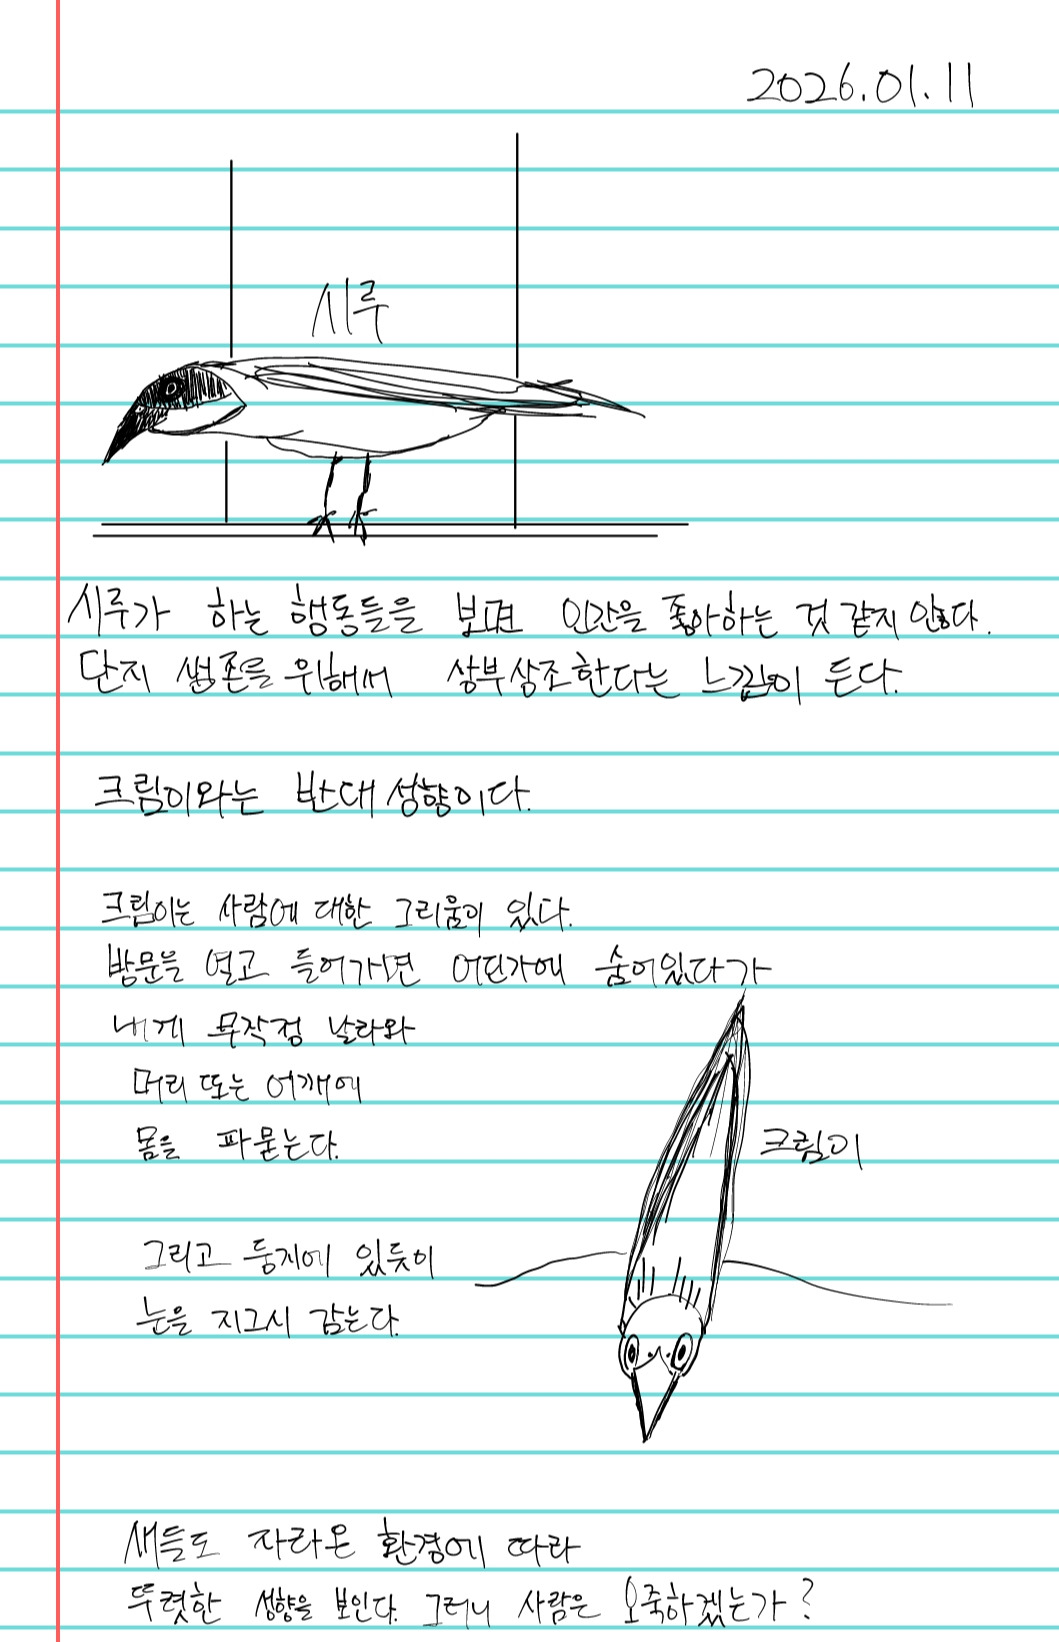 2026.01.11
시루
시루가 하는 행동들을 보면 인간을 좋아하는 것 같지 않다.
단지 생존을 위해서 상부상조한다는 느낌이 든다.
크림이와는 반대 성향이다.
크림이는 사람에 대한 그리움이 있다.
방문을 열고 들어가면 어딘가에 숨어있다가
내게 무작정 날라와
머리 또는 어깨에
몸을 파묻는다.
크림이
그리고 둥지에 있듯이
눈을 지그시 감는다.
새들도 자라온 환경에 따라
뚜렷한 성향을 보인다. 그러니 사람은 오죽하겠는가?